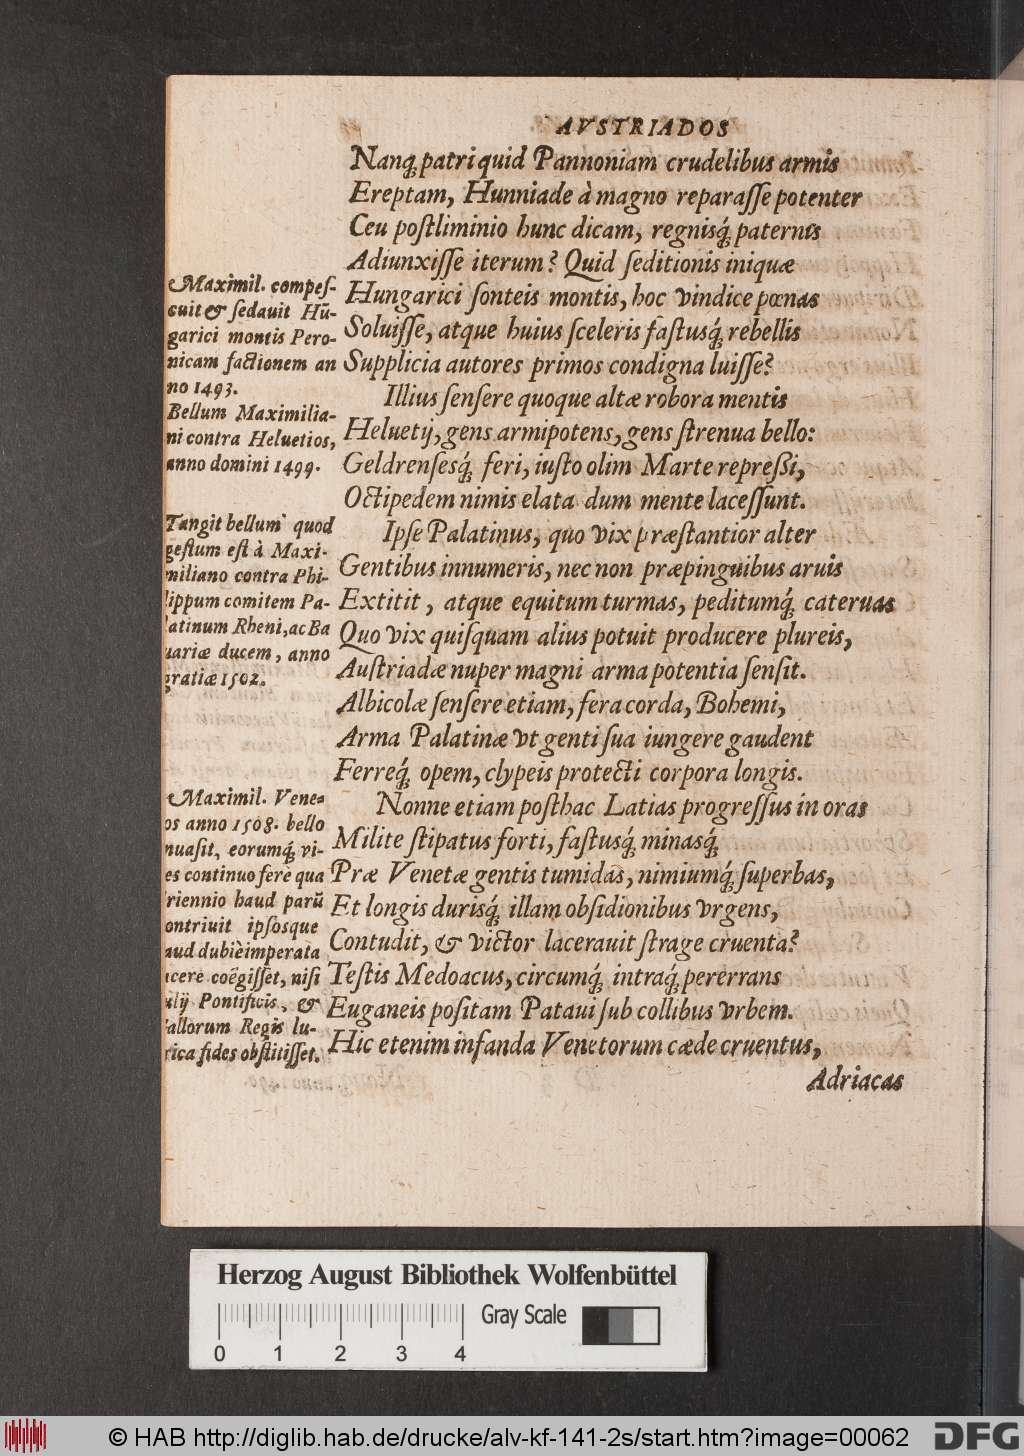 AVSTRIADOS
Nanq́; patri quid Pannoniam crudelibus armis
Ereptam, Hunniade à magno reparaſſe potenter
Ceu poſtliminio hunc dicam, regnisq́; paternis
Adiunxiſſe iterum? Quid ſeditionis iniquæ
Hungarici ſonteis montis, hoc vindice pœnas
Soluiſſe, atque huius ſceleris faſtusq́; rebellis
Supplicia autores primos condigna luiſſe?
Illius ſenſere quoque altæ robora mentis
Heluetij, gens armipotens, gens ſtrenua bello:
Geldrenſesq́; feri, iuſto olim Marte repreßi,
Octipedem nimis elata dum mente laceſſunt.
Ipſe Palatinus, quo vix præſtantior alter
Gentibus innumeris, nec non præpinguibus aruis
Extitit, atque equitum turmas, peditumq́; cateruas
Quo vix quiſquam alius potuit producere plureis,
Auſtriadæ nuper magni arma potentia ſenſit.
Albicolæ ſenſere etiam, fera corda, Bohemi,
Arma Palatinæ vt genti ſua iungere gaudent
Ferreq́; opem, clypeis protecti corpora longis.
Nonne etiam poſthac Latias progreſſus in oras
Milite ſtipatus forti, faſtusq́; minasq́;
Præ Venetæ gentis tumidas, nimiumq́; ſuperbas,
Et longis durisq́; illam obſidionibus vrgens,
Contudit, & victor lacerauit ſtrage cruenta?
Teſtis Medoacus, circumq́; intraq́; pererrans
Euganeis poſitam Pataui ſub collibus vrbem.
Hic etenim infanda Venetorum cæde cruentus,
Adriacas
Maximil. compeſ-
cuit & ſedauit Hū-
garici montis Pero-
nicam factionem an
no 1493.
Bellum Maximilia-
ni contra Heluetios,
anno domini 1499.
Tangit bellum quod
geſtum eſt à Maxi-
miliano contra Phi-
lippum comitem Pa-
latinum Rheni, ac Ba
uariæ ducem, anno
gratiæ 1502.
Maximil. Vene-
os anno 1508. bello
nuaſit, eorumq́; vi-
es continuo ferè qua
riennio haud parū
ontriuit ipſosque
aud dubiè imperata
acere coëgiſſet, niſi
ulij Pontificis, &
allorum Regis lu-
rica fides obſtitiſſet.
Herzog August Bibliothek Wolfenbüttel
Gray Scale
0 1 2 3 4
© HAB http://diglib.hab.de/drucke/alv-kf-141-2s/start.htm?image=00062
DFG